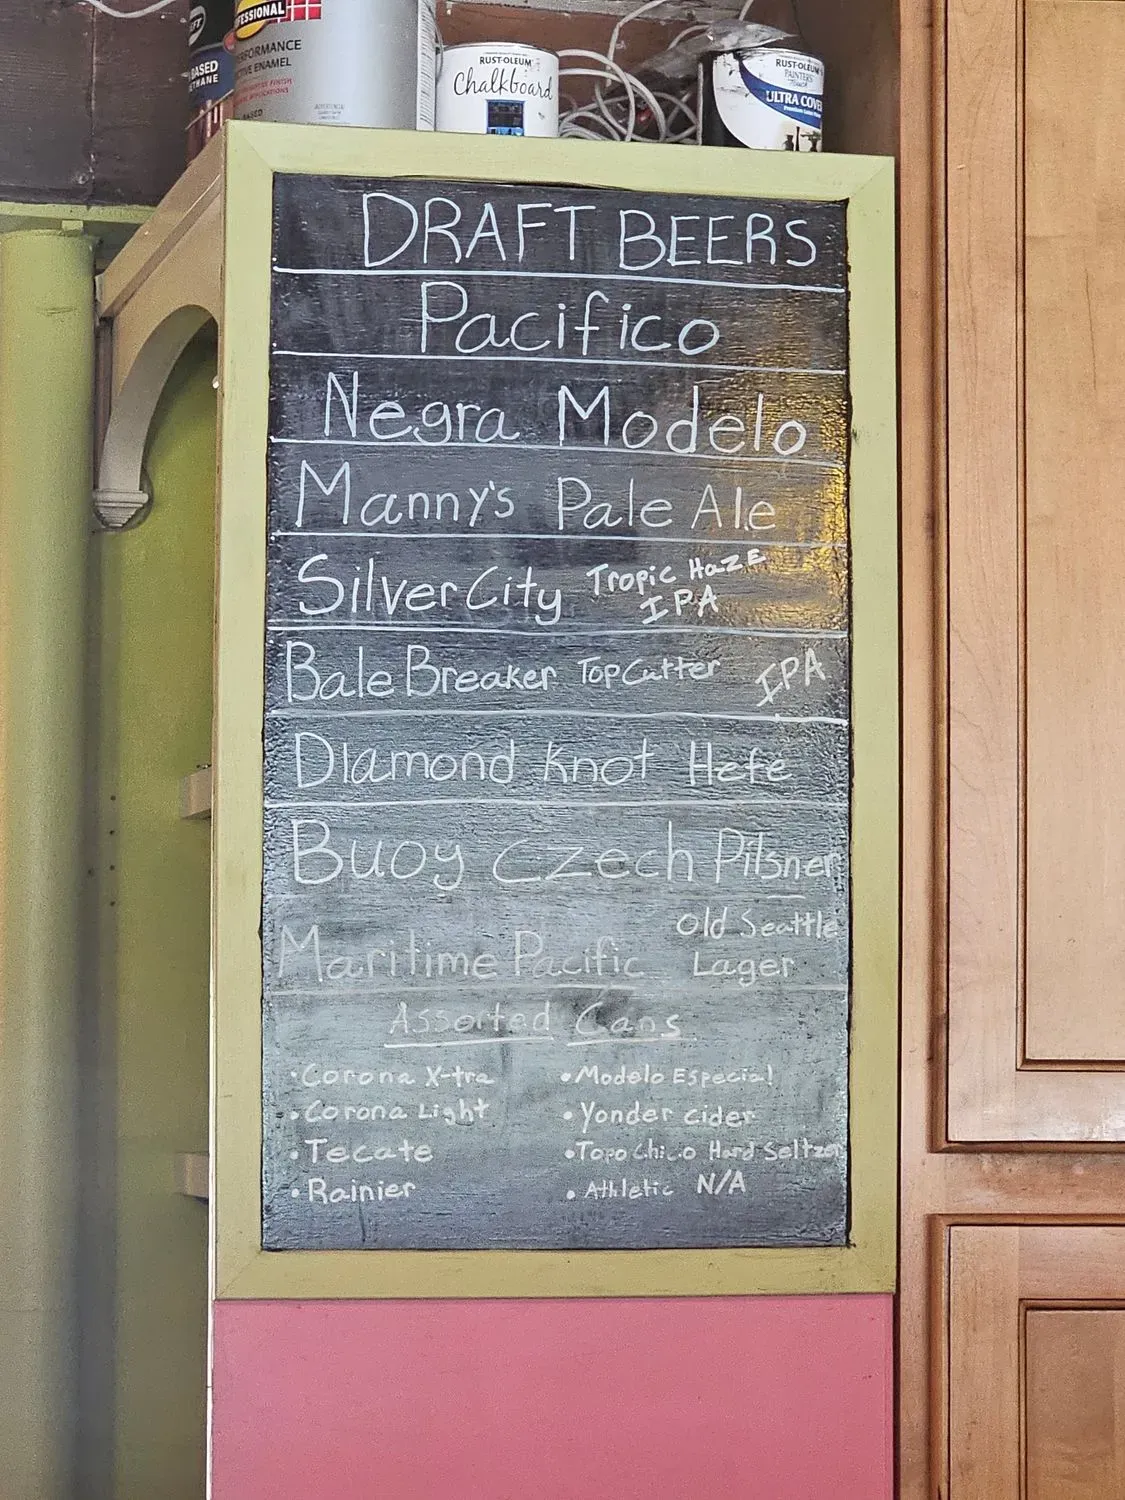 PROFESSIONAL
PERFORMANCE
ENAMEL
BASED
RUST-OLEUM
Chalkboard
RUST-OLEUM
PAINTER'S
Touch
ULTRA COVER
DRAFT BEERS
Pacifico
Negra Modelo
Manny's Pale Ale
Silver City Tropic Haze
IPA
Bale Breaker TopCutter IPA
Diamond Knot Hefe
Buoy Czech Pilsner
Old Seattle
Maritime Pacific Lager
Assorted Cans
• Corona X-tra • Modelo Especial
• Corona Light • Yonder cider
• Tecate • Topo Chico Hard Seltzer
• Rainier • Athletic N/A